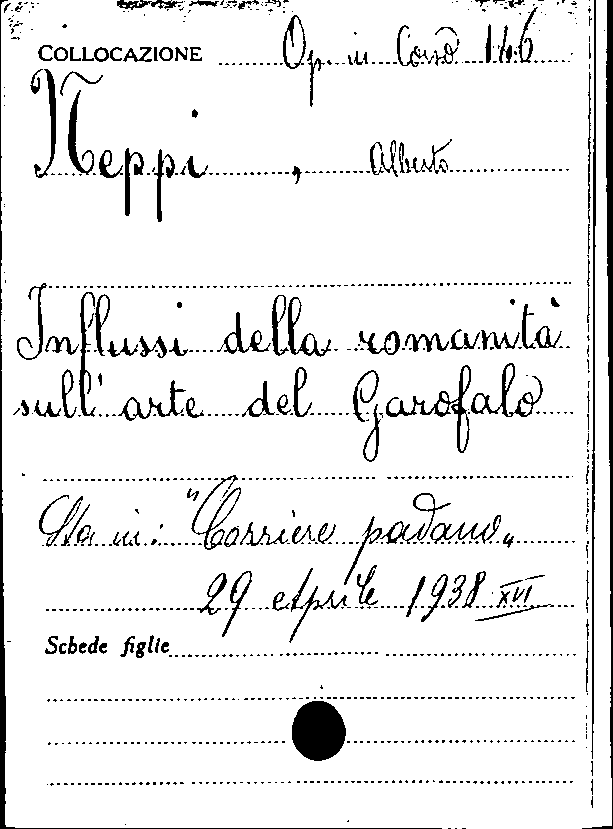 COLLOCAZIONE Op. in Corso 146
Neppi, Alberto
Influssi della romanità
sull'arte del Garofalo
Sta in: "Corriere padano"
29 Aprile 1938 XVI
Schede figlie